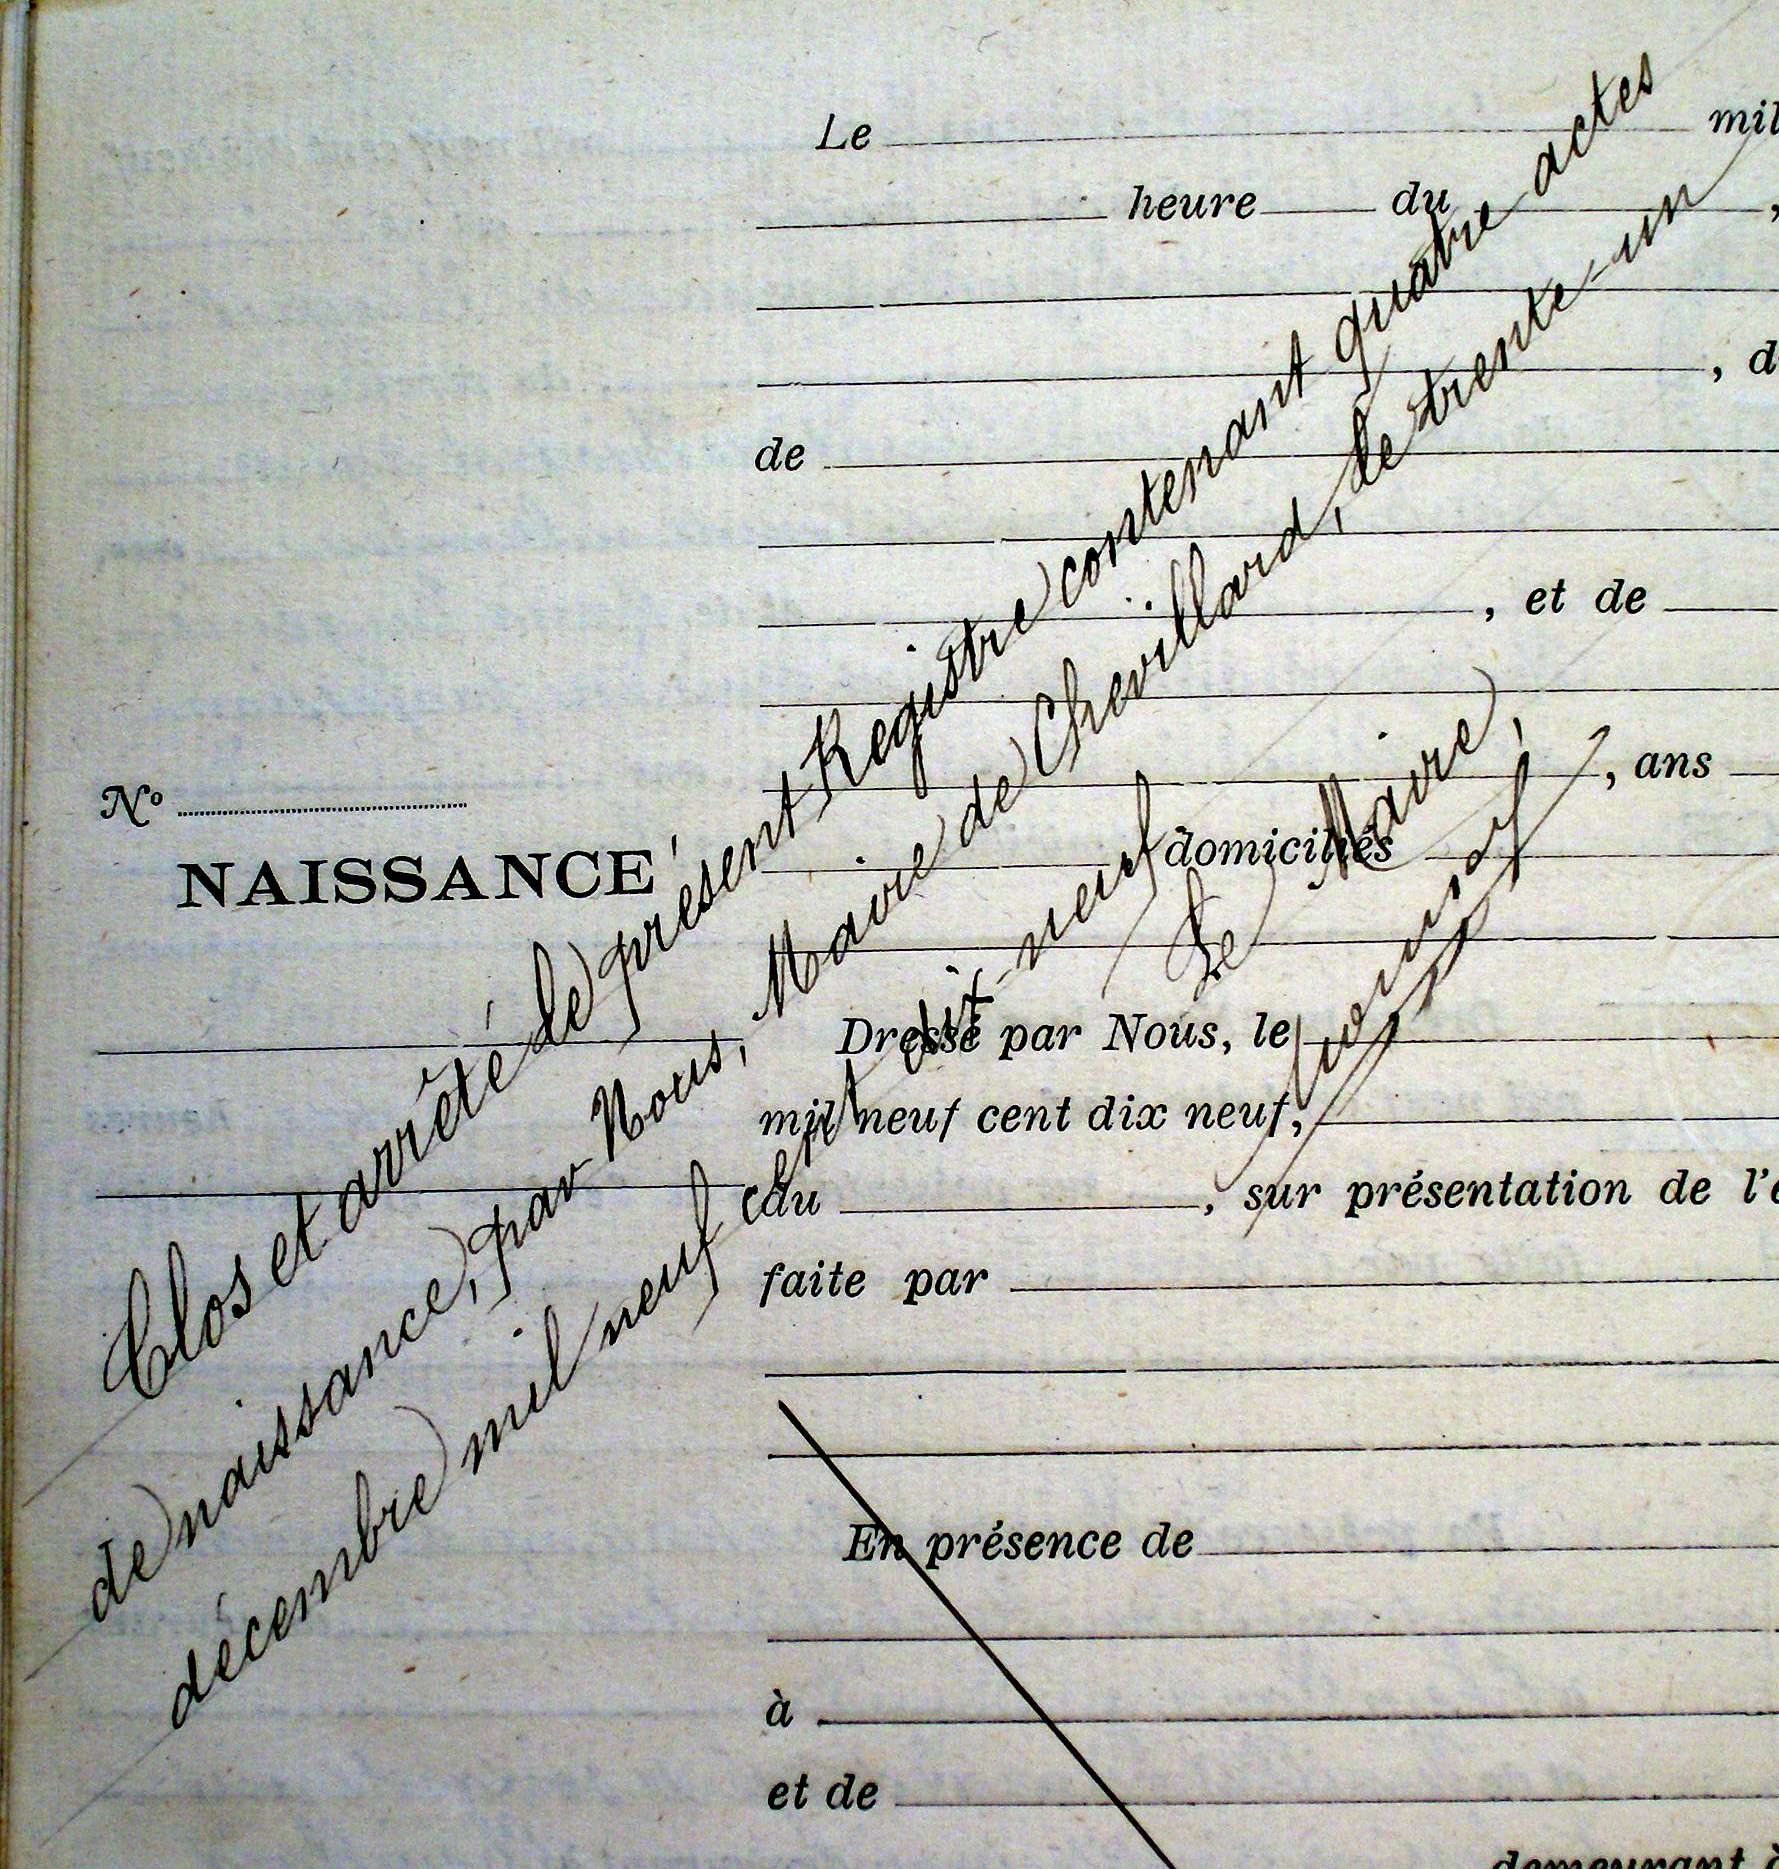 Le mil
heure du ,
, d
de
, et de
, ans
N°
NAISSANCE
domiciliés
Dressé par Nous, le
mil neuf cent dix neuf,
du , sur présentation de l'e
faite par
En présence de
à
et de
demeurant à
Clos et arrêté le présent Registre contenant quatre actes
de naissance, par Nous, Maire de Chevillard, le trente-un
décembre mil neuf cent dix-neuf
Le Maire,